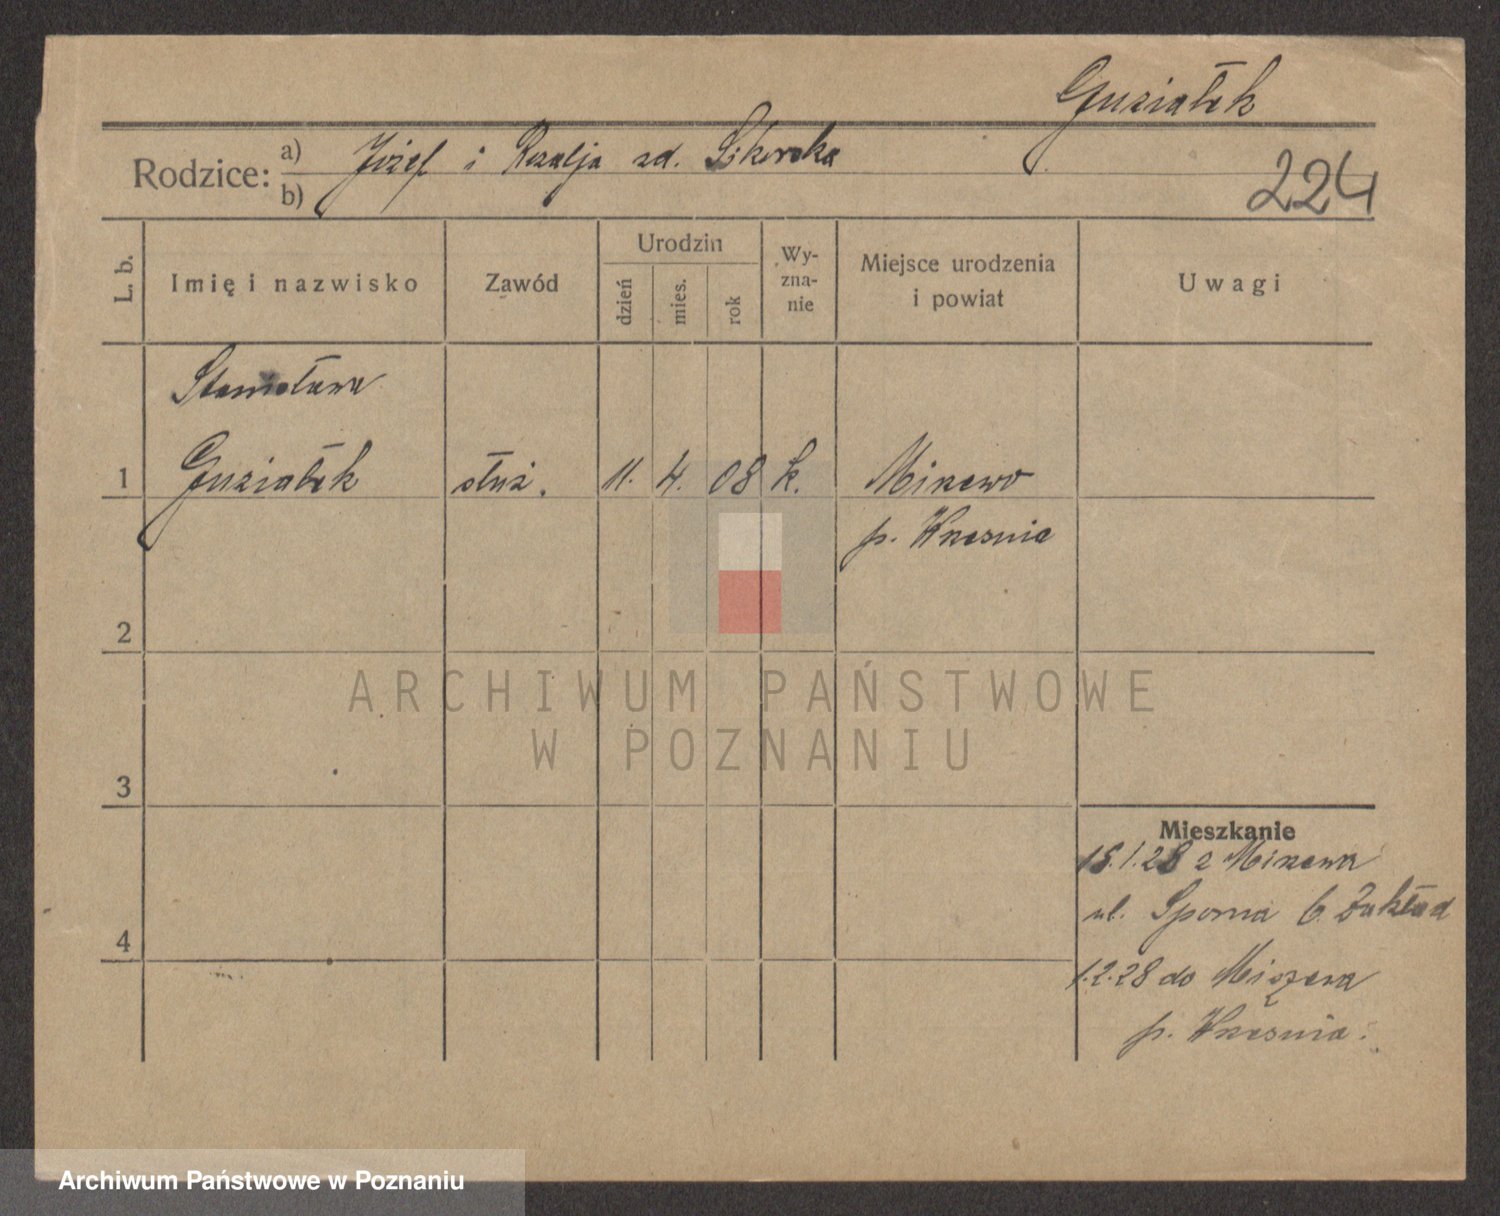 Guziałek
Rodzice: a) Józef i Rozalja zd. Sikorska
b)
224
L. b. Imię i nazwisko Zawód Urodzin dzień mies. rok Wyznanie Miejsce urodzenia i powiat Uwagi
Stanisława
1 Guziałek służ. 11. 4. 08 k. Mikzewo
p. Września
2
ARCHIWUM PAŃSTWOWE
W POZNANIU
3
Mieszkanie
15.1.28 z
ul. Sporna 6. Zakład
4
1.2.28 do
p. Września.
Archiwum Państwowe w Poznaniu